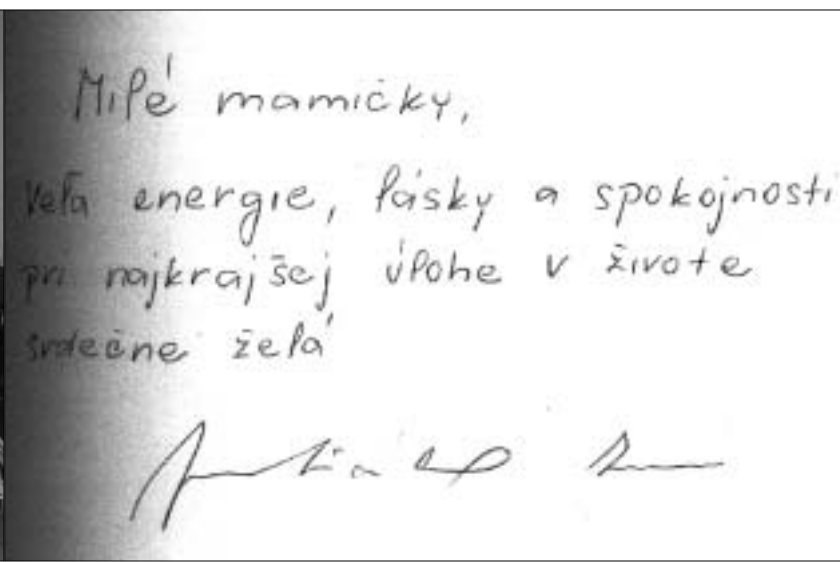 Milé mamičky,
veľa energie, lásky a spokojnosti
pri najkrajšej úlohe v živote
srdečne želá